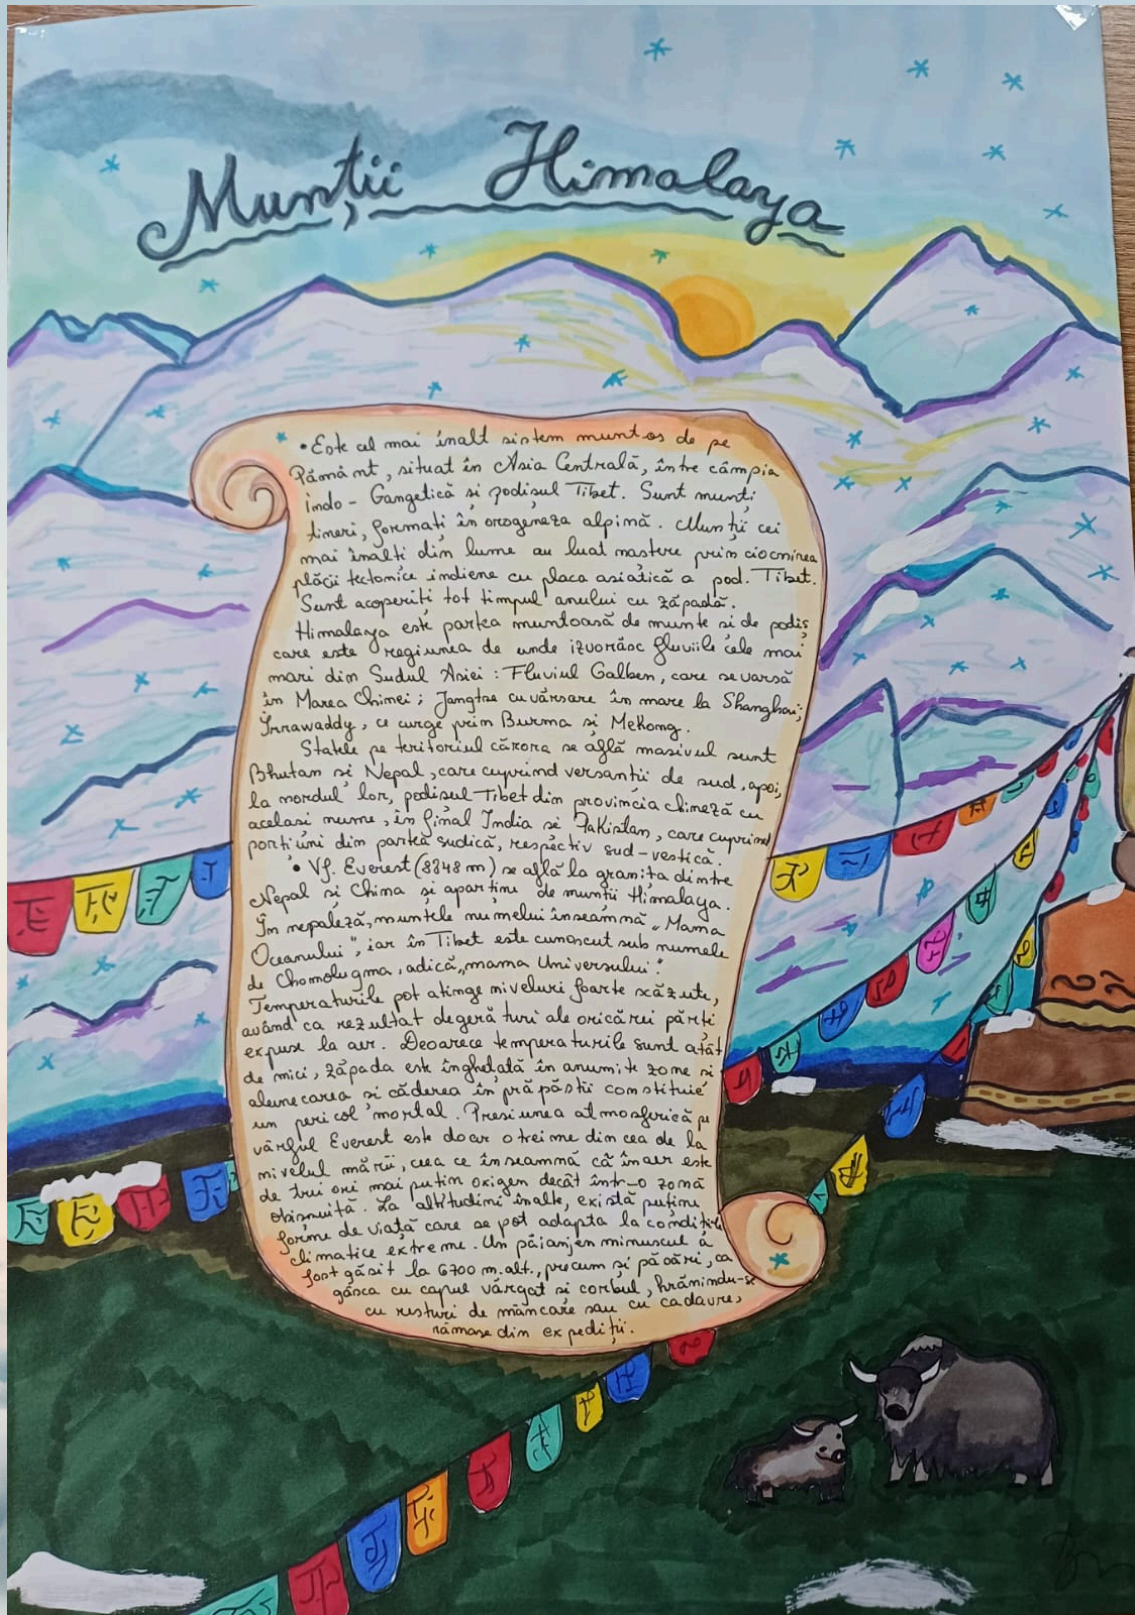 Munții Himalaya
• Este cel mai înalt sistem muntos de pe
Pământ, situat în Asia Centrală, între câmpia
indo - Gangetică si podisul Tibet. Sunt munti
tineri, formați în orogeneza alpină. Munții cei
mai înalti din lume au luat nastere prin ciocnirea
plăcii tectonice indiene cu placa asiatică a pod. Tibet.
Sunt acoperiti tot timpul anului cu zăpadă.
Himalaya este partea muntoasă de munte si de podiș
care este regiunea de unde izvorăsc fluviile cele mai
mari din Sudul Asiei : Fluviul Galben, care se varsă
în Marea Chinei ; Jangtse cu vărsare în mare la Shanghai;
Irrawaddy, ce curge prin Burma si Mekong.
Statele pe teritoriul cărora se află masivul sunt
Bhutan si Nepal, care cuprind versanții de sud, apoi,
la nordul lor, podisul Tibet din provincia chineză cu
acelasi nume, în final India si Pakistan, care cuprind
porțiuni din partea sudică, respectiv sud-vestică.
• Vf. Everest (8848 m) se află la granița dintre
Nepal și China și aparține de munții Himalaya.
În nepaleză, muntele numelui înseamnă „Mama
Oceanului", iar în Tibet este cunoscut sub numele
de Chomolugma, adică „mama Universului".
Temperaturile pot atinge niveluri foarte scăzute,
având ca rezultat degeră turi ale oricărei părți
expuse la aer. Deoarece temperaturile sunt atât
de mici, zăpada este înghetată în anumite zone si
alunecarea si căderea în prăpăstii constituie
un pericol mortal. Presiunea atmosferică pe
vârful Everest este doar o treime din cea de la
nivelul mării, ceea ce înseamnă că în aer este
de trei ori mai puțin oxigen decât într-o zonă
obisnuită. La altitudini înalte, există puține
forme de viață care se pot adapta la condițiile
climatice extreme. Un păianjen minuscul a
fost găsit la 6700 m.alt., precum și păsări, ca
gâsca cu capul vărgat si corbul, hrănindu-se
cu resturi de mâncare sau cu cadavre,
rămase din expediții.